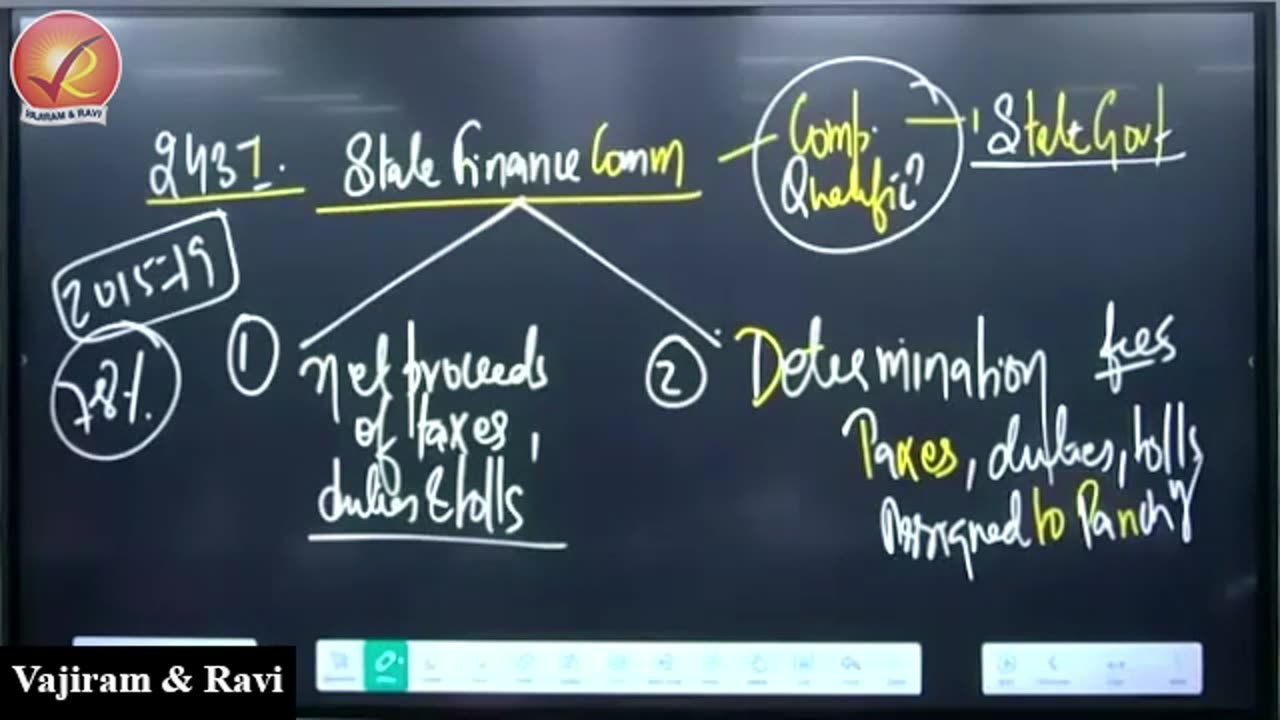 VAJIRAM & RAVI
243I. State Finance Comm — Comp. Qualific? — State Govt
2015-19
78%
① net proceeds
of taxes,
duties & tolls
② Determination fees
Taxes, duties, tolls
Assigned to Panchy
Vajiram & Ravi